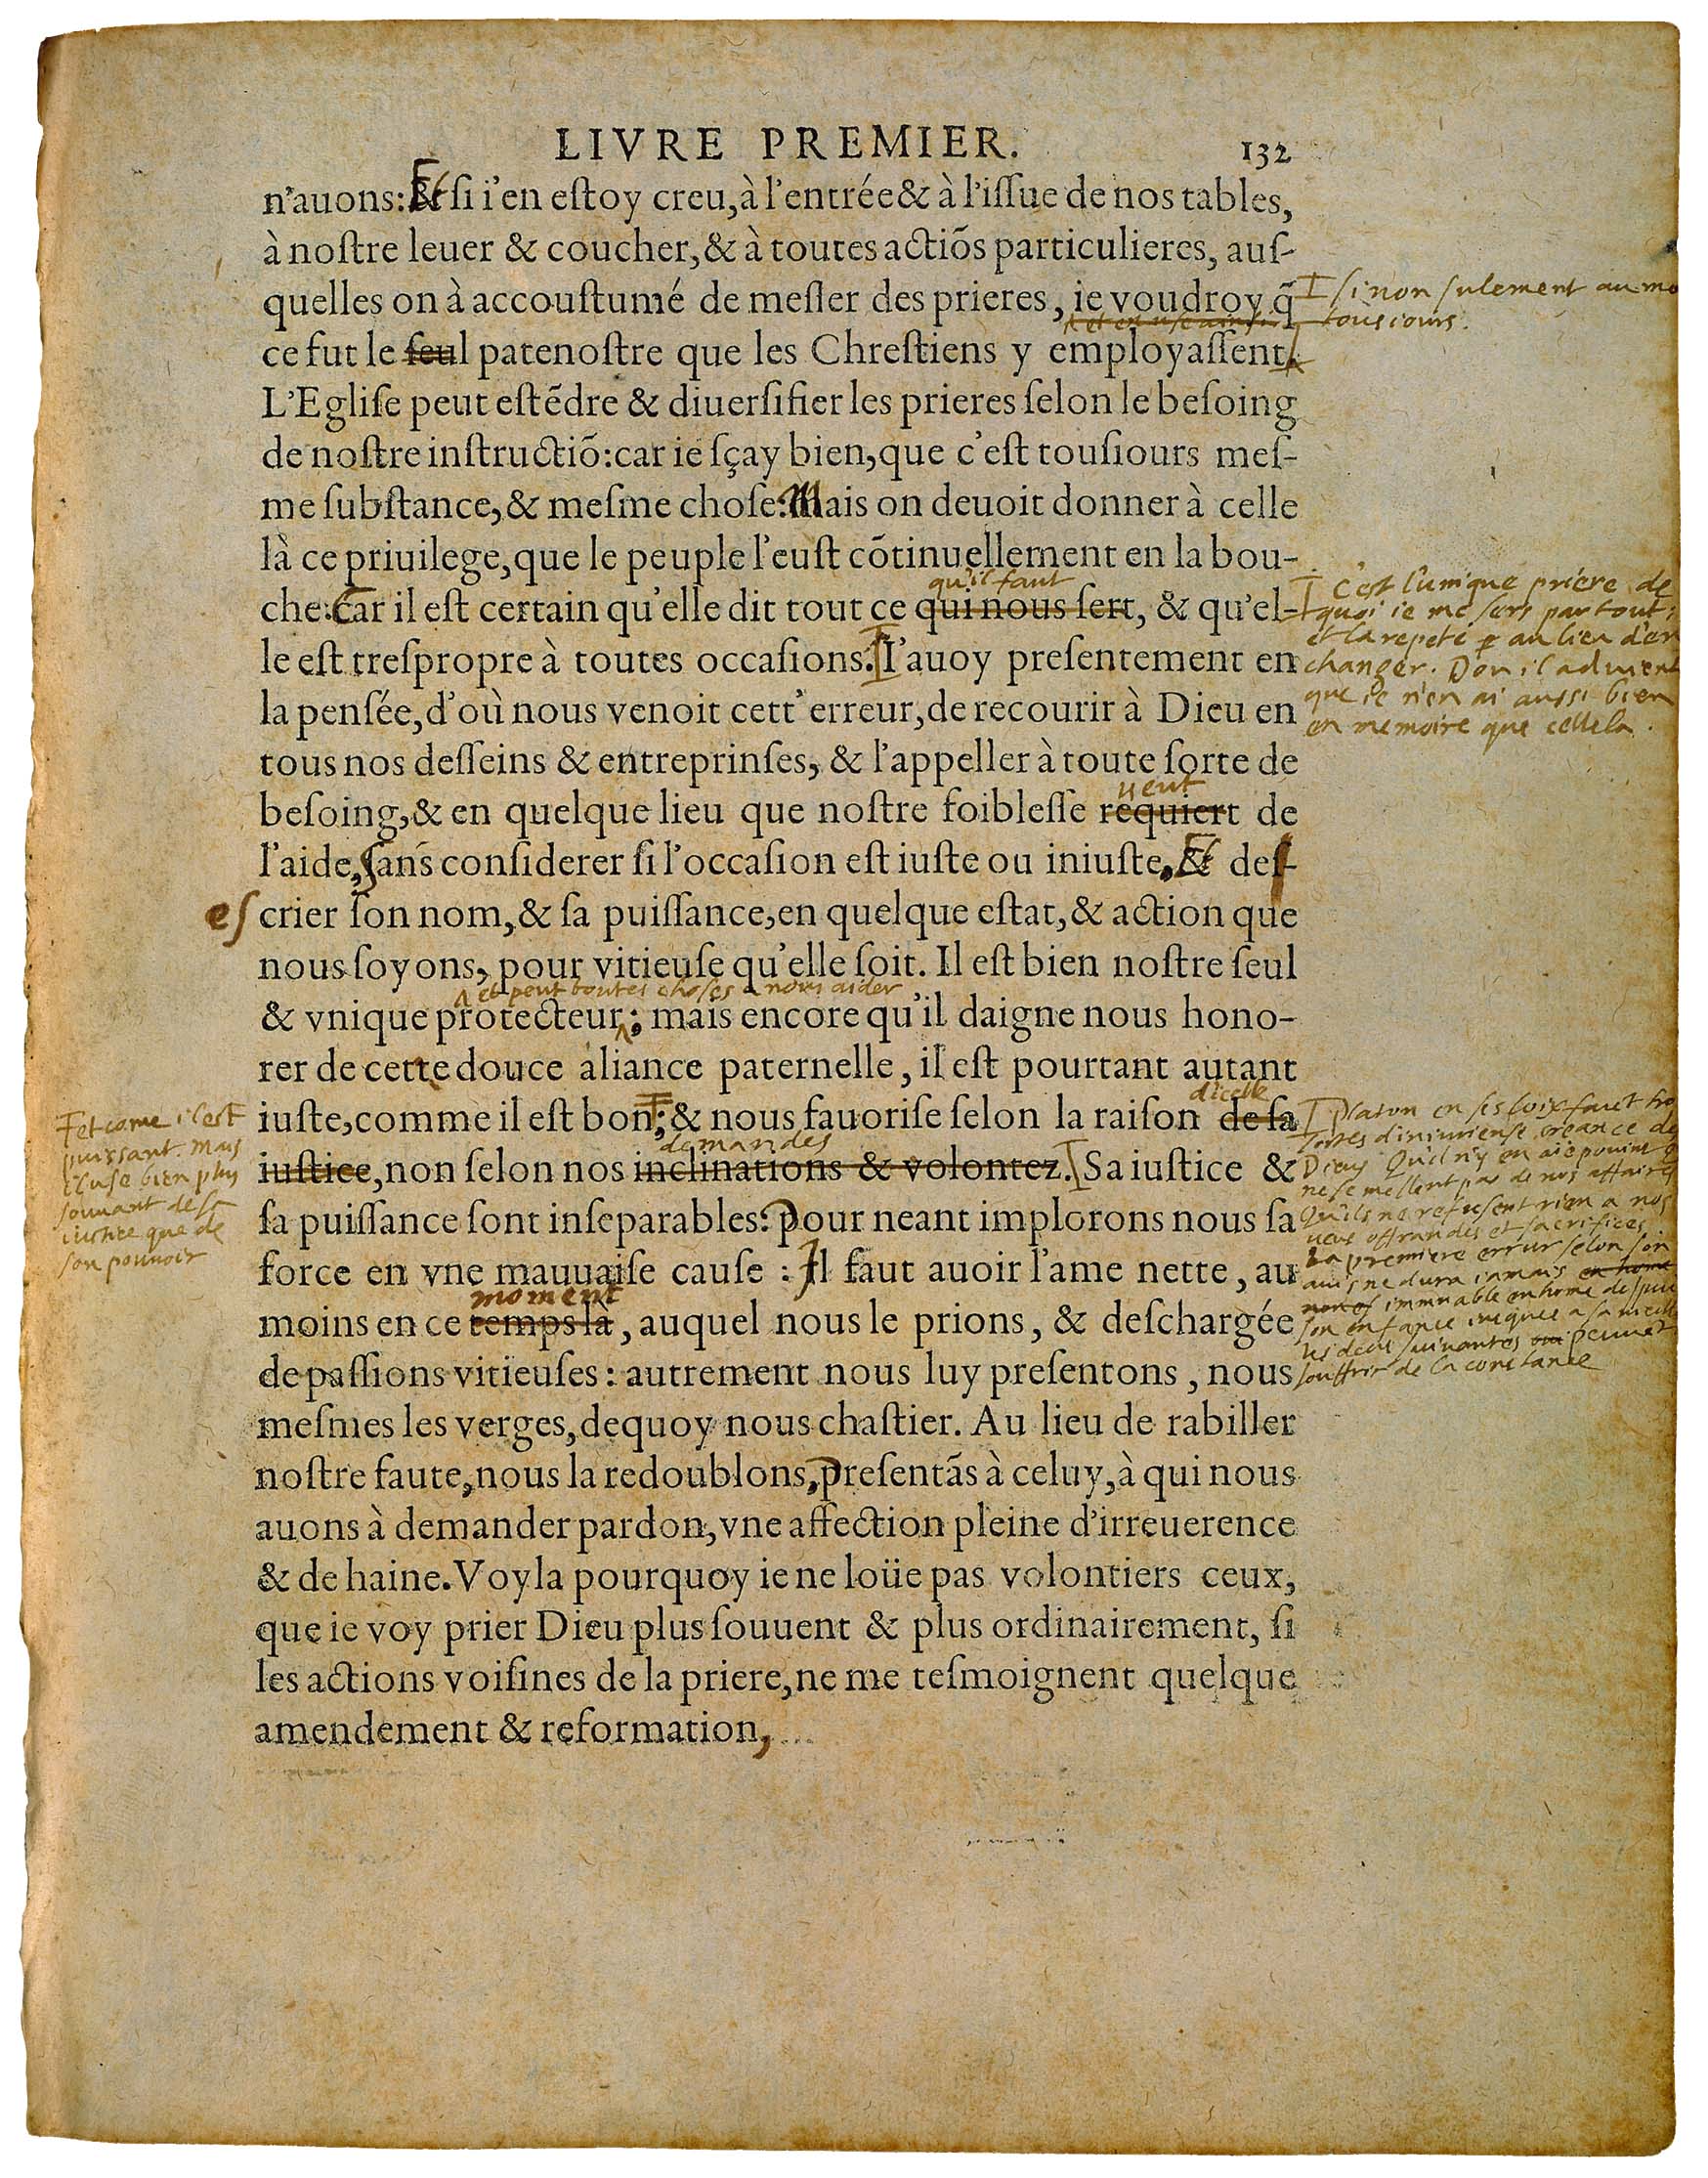 LIVRE PREMIER. 132
n'auons: Et ſi i'en eſtoy creu, à l'entrée & à l'iſſue de nos tables,
à noſtre leuer & coucher, & à toutes actiõs particulieres, auſ-
quelles on à accouſtumé de meſler des prieres, ie voudroy q̃
et en use ainsin
I si non sulement au mo
tousiours.
ce fut le seul patenoſtre que les Chreſtiens y employaſſent
L'Egliſe peut eſtẽdre & diuerſifier les prieres ſelon le beſoing
de noſtre inſtructiõ: car ie ſçay bien, que c'eſt touſiours meſ-
me ſubſtance, & meſme choſe: Mais on deuoit donner à celle
là ce priuilege, que le peuple l'euſt cõtinuellement en la bou-
qu'il faut
che: Car il eſt certain qu'elle dit tout ce qui nous ſert, & qu'el-
le eſt treſpropre à toutes occaſions. I'auoy preſentement en
I C'est l'unique priere de
quoi ie me sers par tout;
et la repete au lieu d'en
changer. D'ou il aduient
que ie n'en ai aussi bien
en memoire que cellela.
la penſée, d'où nous venoit cett'erreur, de recourir à Dieu en
tous nos deſſeins & entreprinſes, & l'appeller à toute ſorte de
veut
beſoing, & en quelque lieu que noſtre foibleſſe requiert de
l'aide, Sans conſiderer ſi l'occaſion eſt iuſte ou iniuſte, Et deſ-
es crier ſon nom, & ſa puiſſance, en quelque eſtat, & action que
nous ſoyons, pour vitieuſe qu'elle ſoit. Il eſt bien noſtre ſeul
et peut toutes choses a nous aider
& vnique protecteur; mais encore qu'il daigne nous hono-
rer de cette douce aliance paternelle, il eſt pourtant autant
dicelle
iuſte, comme il eſt bon; & nous fauoriſe ſelon la raiſon de ſa
et come il est
puissant. Mais
il use bien plus
souuant de sa
iustice que de
son pouuoir
demandes
iuſtice, non ſelon nos inclinations & volontez. Sa iuſtice &
I Platon en ses loix faict tro
sortes d'iniurieuse creance de
Dieux Qu'il n'y en aie pouint
ne se meslent pas de nos affaires
Qu'ils ne refusent rien a nos
veus offrandes et sacrifices.
La premiere errur selon son
auis ne dura iamais en home
immuable en home despuis
son enfance iusques a sa vieill
les deus suiuantes peuuet
souffrir de la constance
ſa puiſſance ſont inſeparables: Pour neant implorons nous ſa
force en vne mauuaiſe cauſe: Il faut auoir l'ame nette, au
moment
moins en ce temps là, auquel nous le prions, & deſchargée
de paſſions vitieuſes: autrement nous luy preſentons, nous
meſmes les verges, dequoy nous chaſtier. Au lieu de rabiller
noſtre faute, nous la redoublons, preſentãs à celuy, à qui nous
auons à demander pardon, vne affection pleine d'irreuerence
& de haine. Voyla pourquoy ie ne loüe pas volontiers ceux,
que ie voy prier Dieu plus ſouuent & plus ordinairement, ſi
les actions voiſines de la priere, ne me teſmoignent quelque
amendement & reformation,